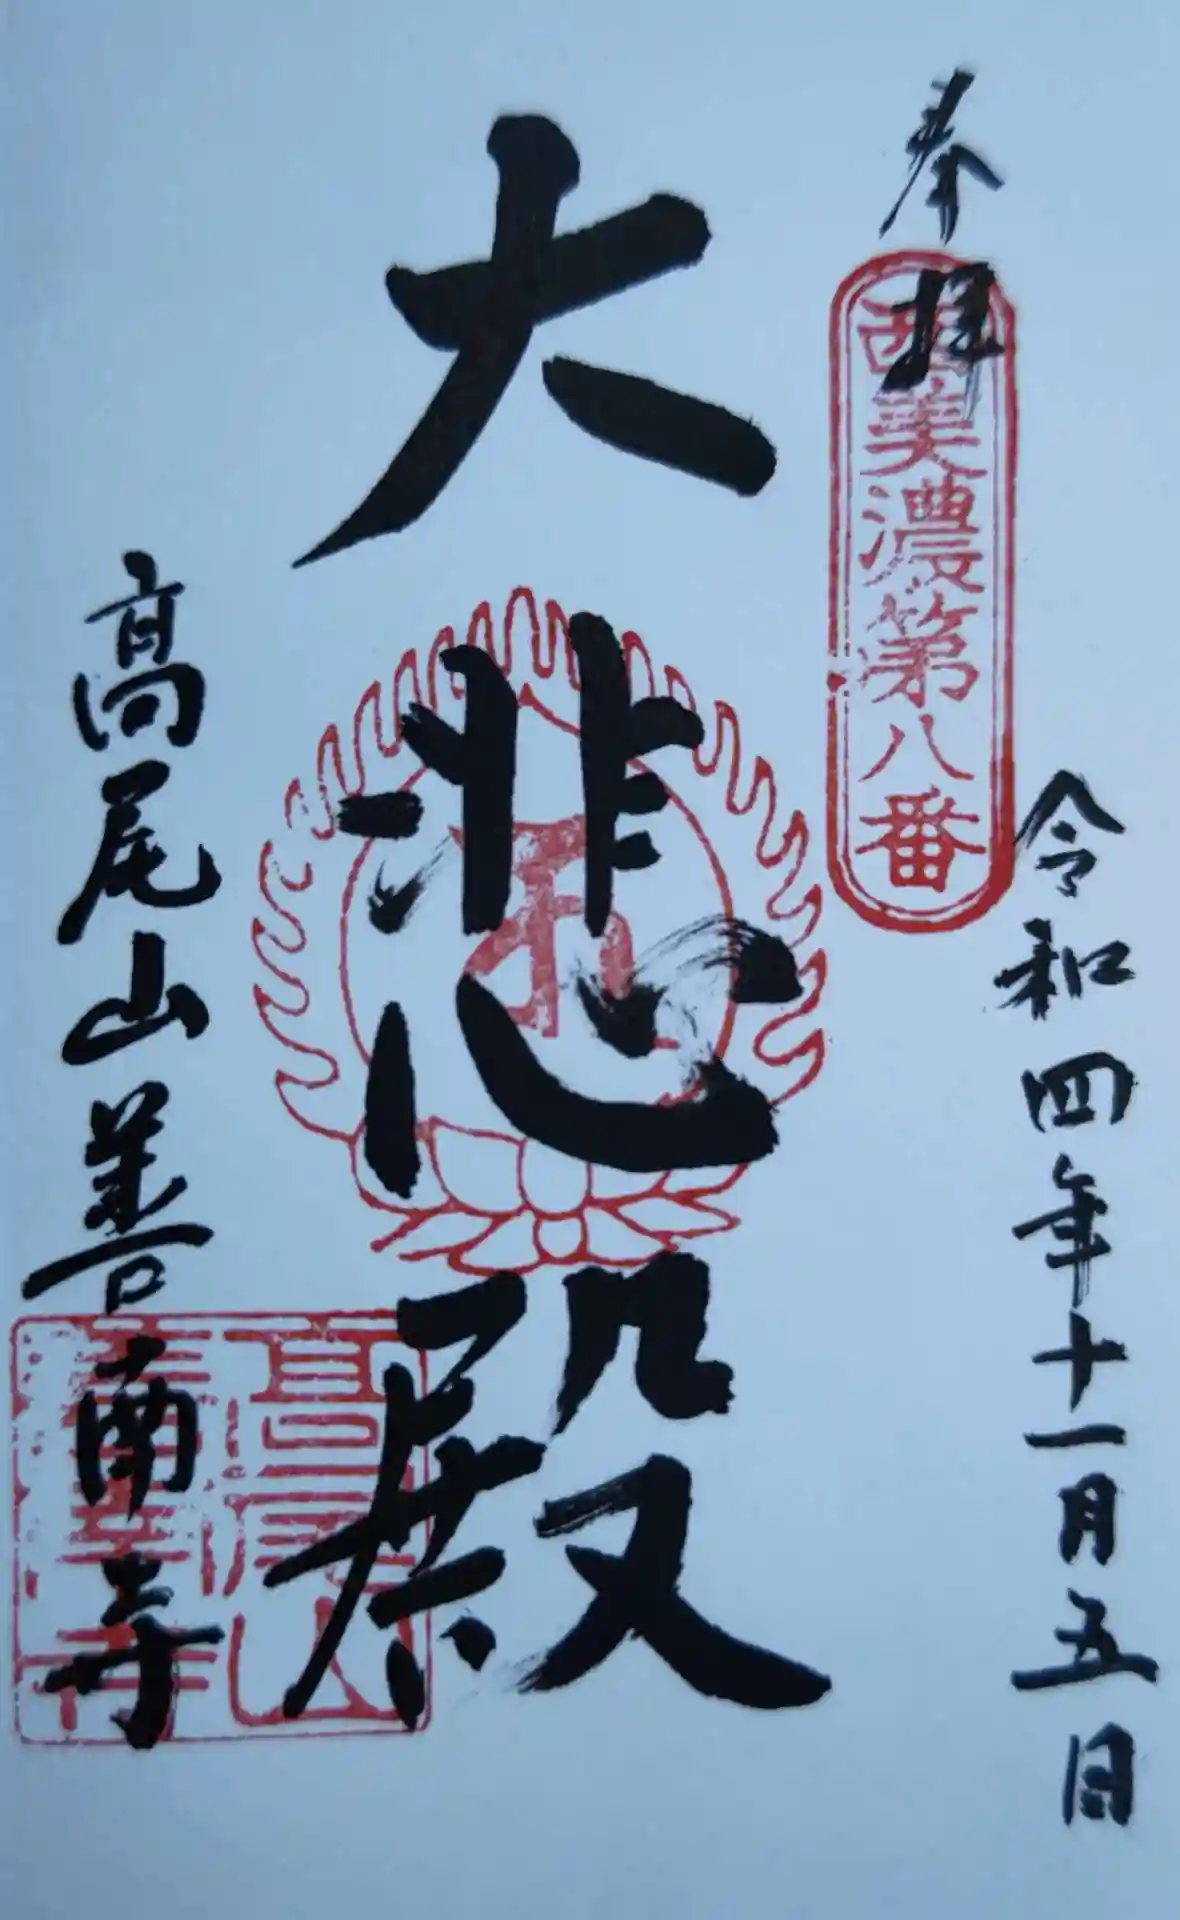 奉拝
西美濃第八番
令和四年十一月五日
大悲殿
高尾山善南寺
高尾山